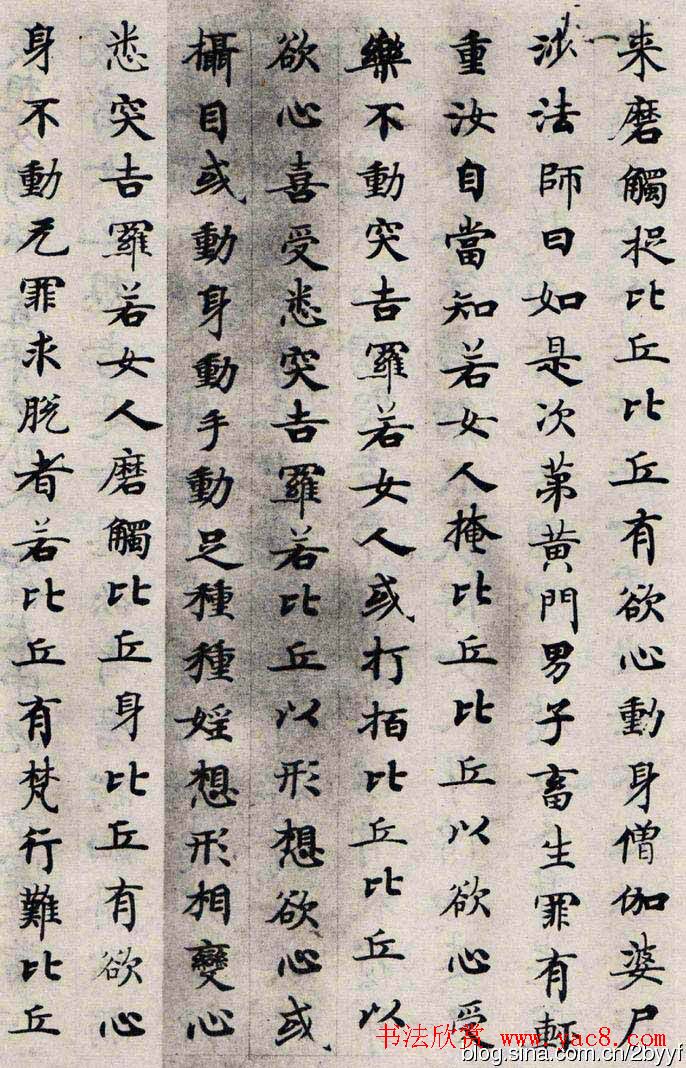 来磨觸捉比丘比丘有欲心動身僧伽婆尸
沙法師曰如是次苐黄門男子畜生罪有軒
重汝自當知若女人掩比丘比丘以欲心受
樂不動突吉羅若女人或打拍比丘比丘以
欲心喜受悉突吉羅若比丘以形想欲心或
攝目或動身動手動足種種婬想形相變心
悉突吉羅若女人磨觸比丘身比丘有欲心
身不動无罪求脫者若比丘有梵行難比丘
书法欣赏 www.yac8.com
blog.sina.com.cn/2byyf